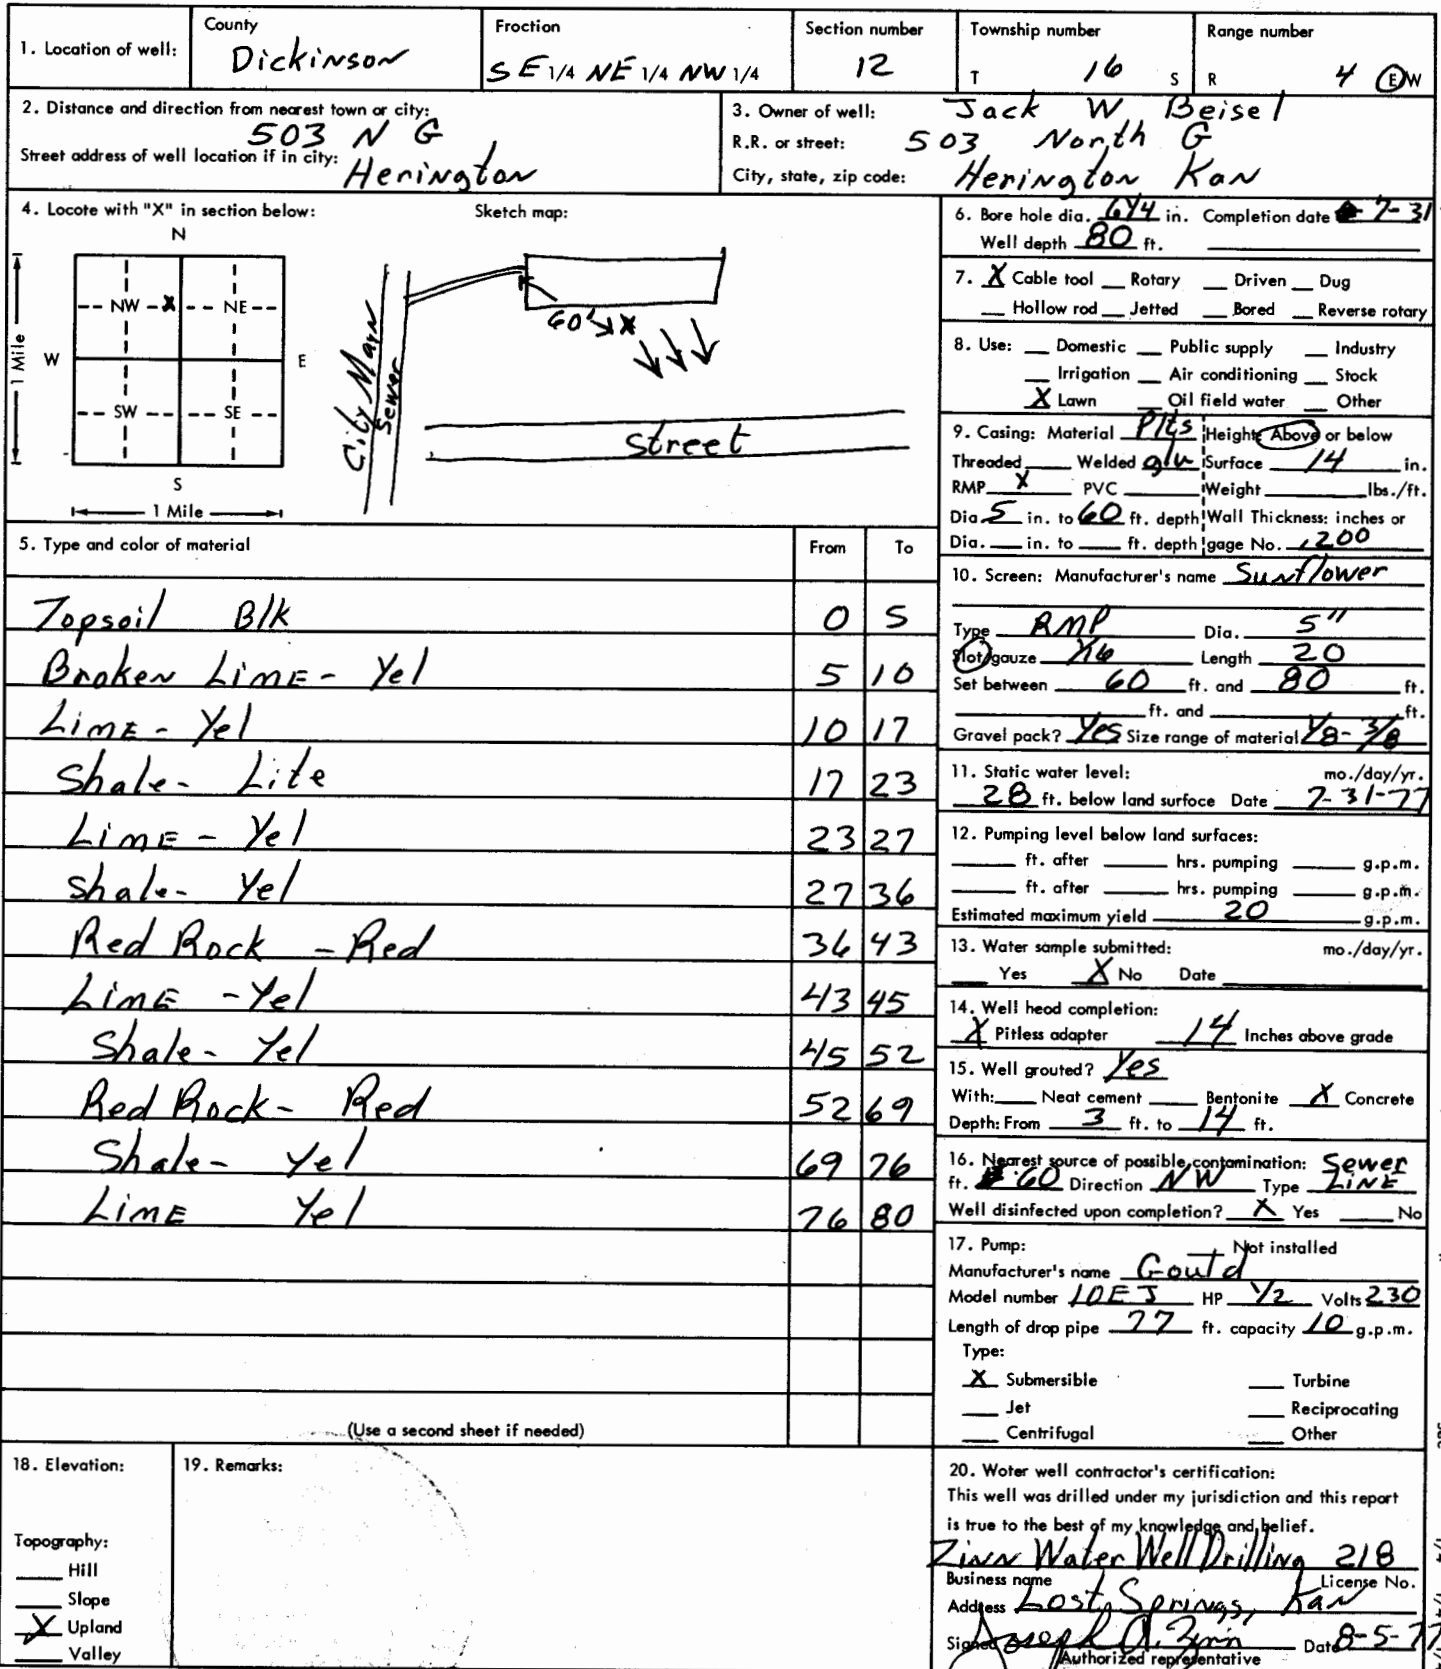 1. Location of well: County Dickinson Fraction SE 1/4 NE 1/4 NW 1/4 Section number 12 Township number T 16 S Range number R 4 E W
2. Distance and direction from nearest town or city:
503 N G
Street address of well location if in city: Herington
3. Owner of well: Jack W Beisel
R.R. or street: 503 North G
City, state, zip code: Herington Kan
4. Locate with "X" in section below: Sketch map:
N
NW X NE
W E
SW SE
S
1 Mile
1 Mile
City Main
Sewer
60' X
Street
5. Type and color of material From To
Topsoil Blk 0 5
Broken Lime - Yel 5 10
Lime - Yel 10 17
Shale - Lite 17 23
Lime - Yel 23 27
Shale - Yel 27 36
Red Rock - Red 36 43
Lime - Yel 43 45
Shale - Yel 45 52
Red Rock - Red 52 69
Shale - Yel 69 76
Lime Yel 76 80
(Use a second sheet if needed)
6. Bore hole dia. 6 1/4 in. Completion date 7-31
Well depth 80 ft.
7. X Cable tool Rotary Driven Dug
Hollow rod Jetted Bored Reverse rotary
8. Use: Domestic Public supply Industry
Irrigation Air conditioning Stock
X Lawn Oil field water Other
9. Casing: Material Plts Height: Above or below
Threaded Welded glu Surface 14 in.
RMP X PVC Weight lbs./ft.
Dia. 5 in. to 60 ft. depth Wall Thickness: inches or
Dia. in. to ft. depth gage No. .200
10. Screen: Manufacturer's name Sunflower
Type RMP Dia. 5"
Slot/gauze 1/16 Length 20
Set between 60 ft. and 80 ft.
ft. and ft.
Gravel pack? Yes Size range of material 1/8 - 3/8
11. Static water level: mo./day/yr.
28 ft. below land surface Date 7-31-77
12. Pumping level below land surfaces:
ft. after hrs. pumping g.p.m.
ft. after hrs. pumping g.p.m.
Estimated maximum yield 20 g.p.m.
13. Water sample submitted: mo./day/yr.
Yes X No Date
14. Well head completion:
X Pitless adapter 14 Inches above grade
15. Well grouted? Yes
With: Neat cement Bentonite X Concrete
Depth: From 3 ft. to 14 ft.
16. Nearest source of possible contamination: Sewer
ft. 60 Direction NW Type Line
Well disinfected upon completion? X Yes No
17. Pump: Not installed
Manufacturer's name Gould
Model number 10EJ HP 1/2 Volts 230
Length of drop pipe 77 ft. capacity 10 g.p.m.
Type:
X Submersible Turbine
Jet Reciprocating
Centrifugal Other
18. Elevation:
Topography:
Hill
Slope
X Upland
Valley
19. Remarks:
20. Water well contractor's certification:
This well was drilled under my jurisdiction and this report
is true to the best of my knowledge and belief.
Zinn Water Well Drilling 218
Business name License No.
Address Lost Springs, Kan
Signed Joseph A. Zinn Date 8-5-77
Authorized representative